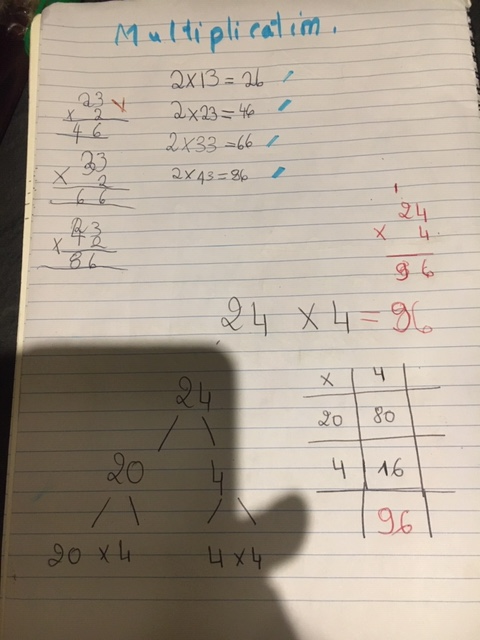 Multiplication.
2×13=26
2×23=46
2×33=66
2×43=86
23
× 2
46
33
× 2
66
43
× 2
86
24
× 4
96
24 × 4 = 96
24
20 4
20 × 4 4 × 4
× 4
20 80
4 16
96